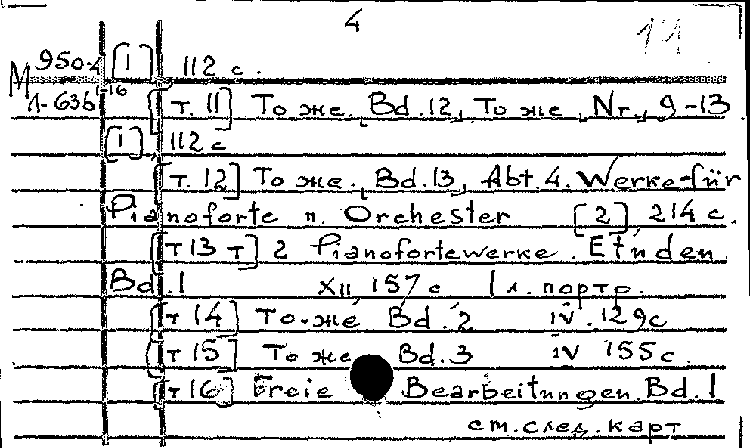 4 11
М 950-4 [1] 112 с.
1-63б 1-16
[т. 11] То же. Bd. 12, То же, Nr., 9-13
[1] 112 с
[т. 12] То же, Bd. 13, Abt. 4. Werke für
Pianoforte n. Orchester [2] 214 с.
[т 13 т] 2 Pianofortewerke. Etüden
Bd. 1 XII 157 с 1 л. портр.
[т 14] То же Bd. 2 IV. 129 с
[т 15] То же Bd. 3 IV 155 с.
[т 16] Freie Bearbeitungen. Bd. 1
см. след. карт